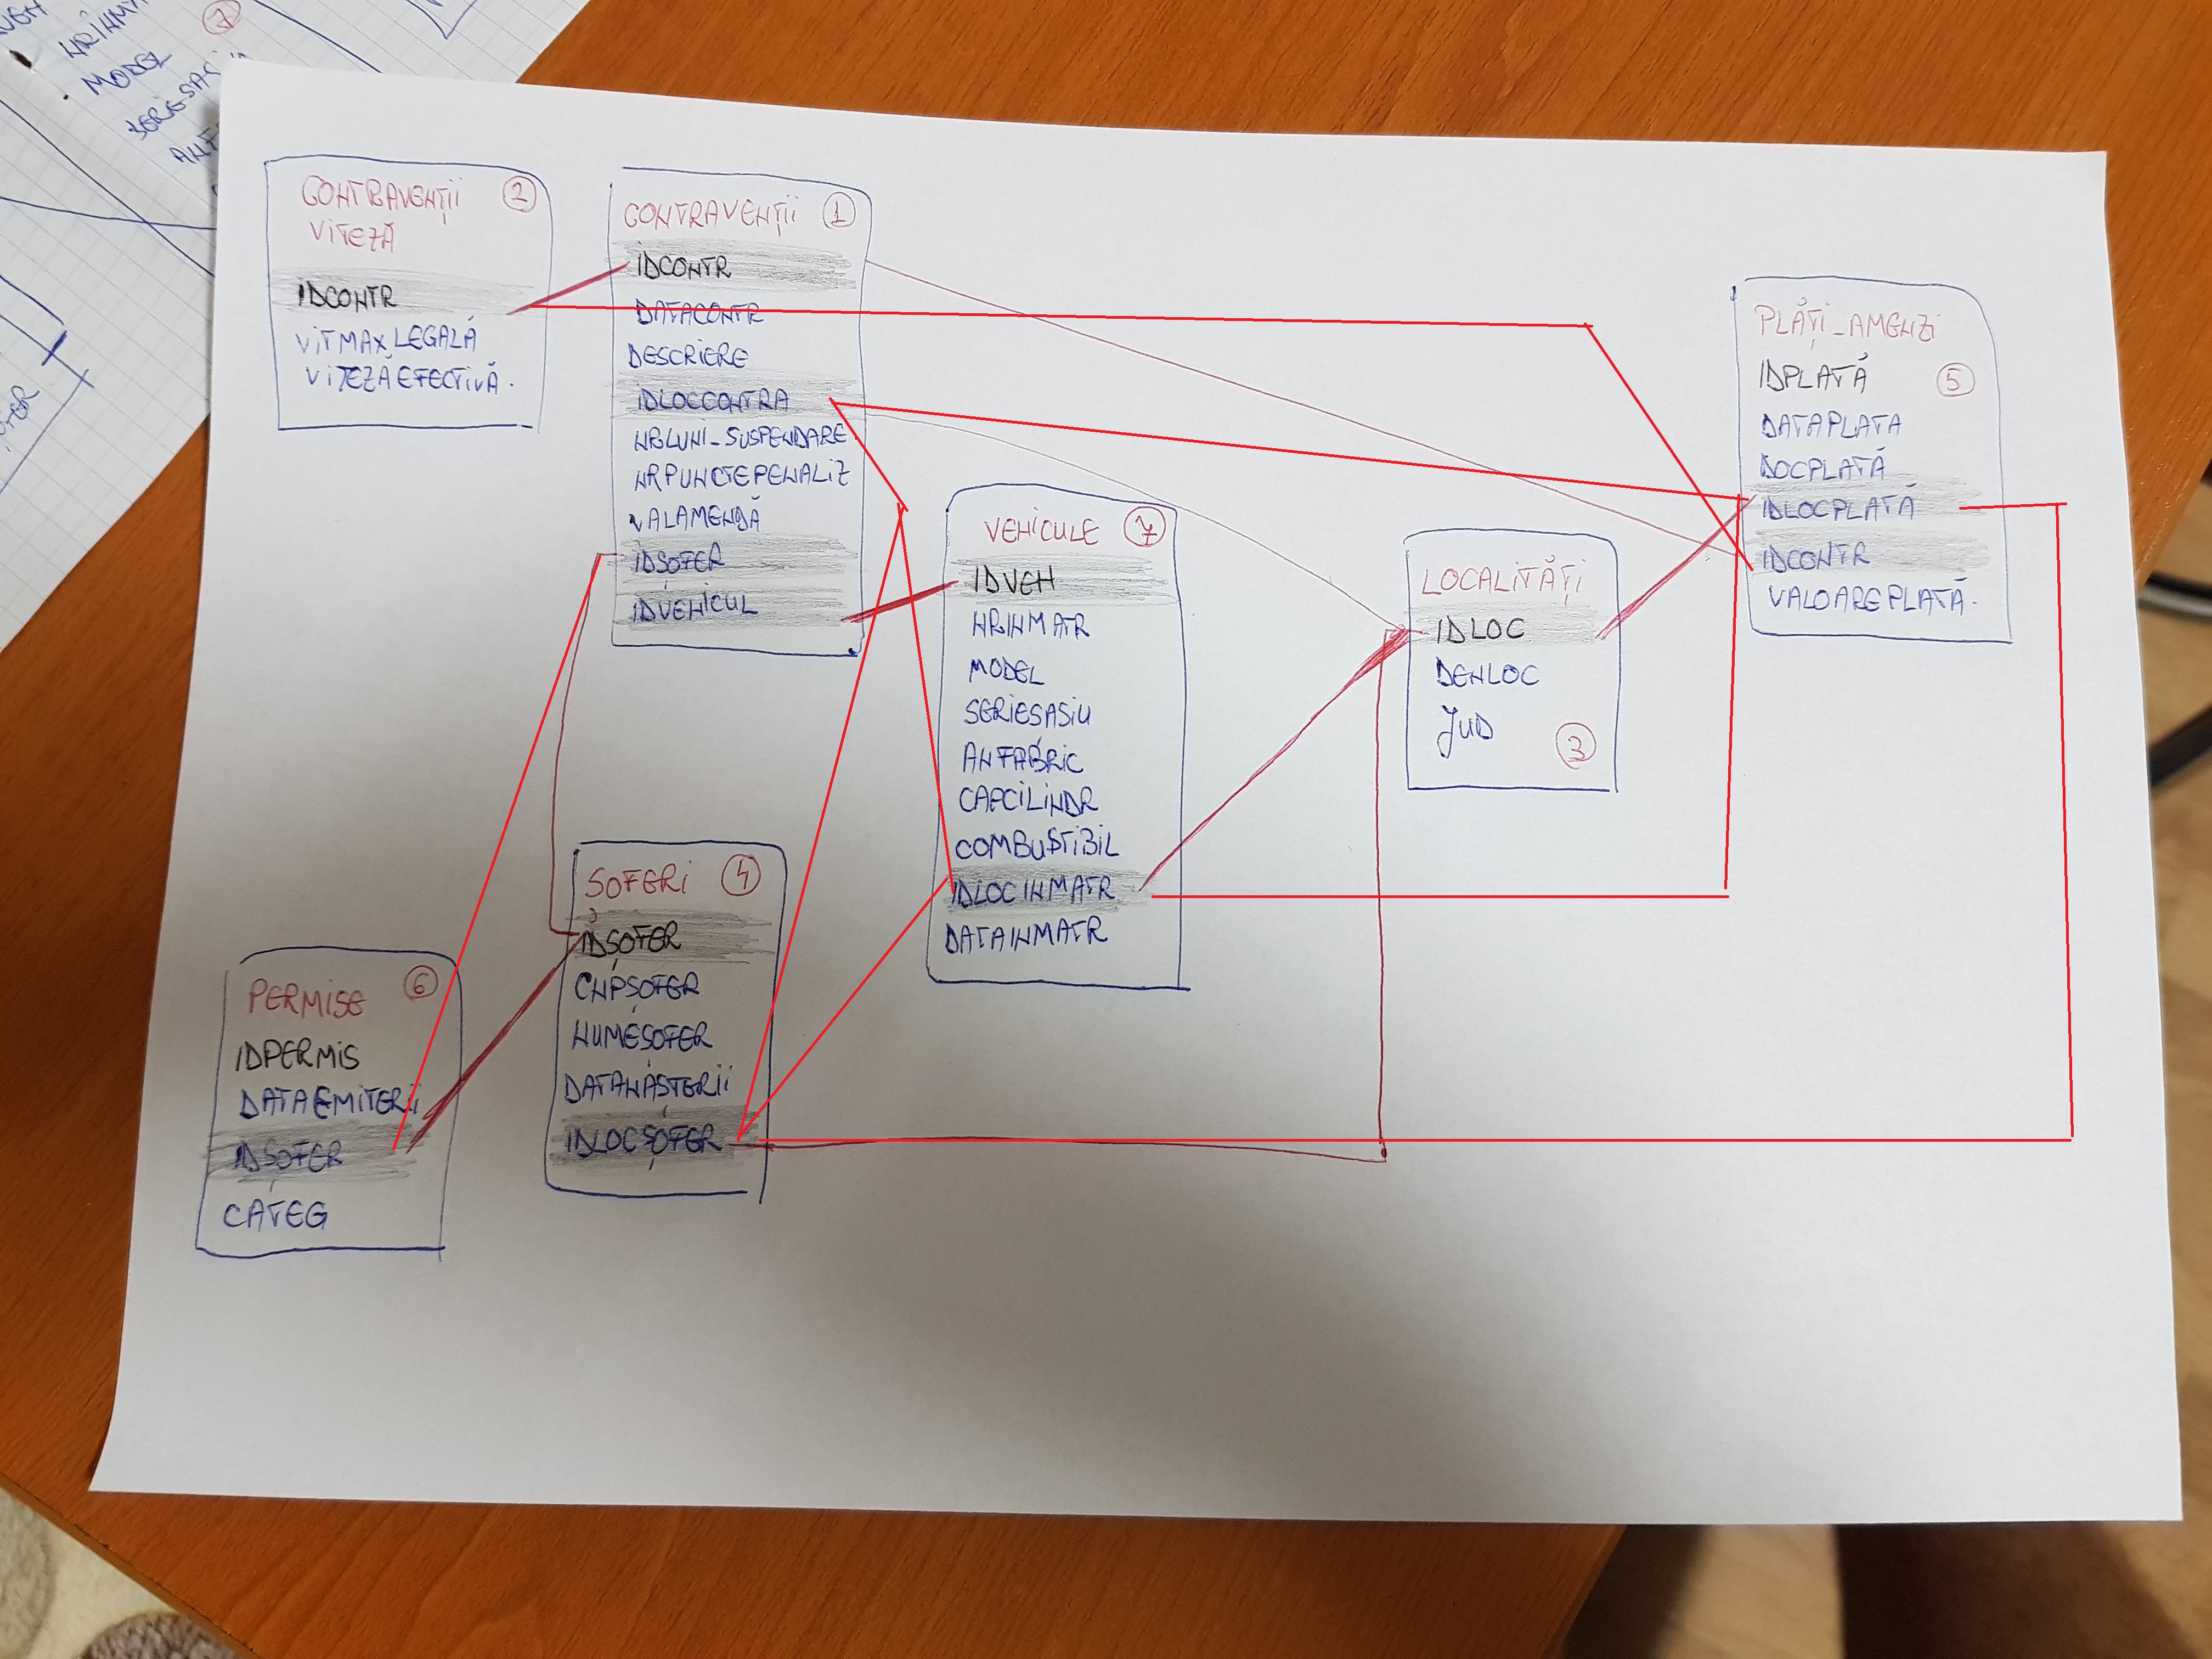 NRÎNM
MODEL
SERIESAS
7
CONTRAVENȚII 2
VITEZĂ
IDCONTR
VITMAXLEGALĂ
VITEZĂEFECTIVĂ.
CONTRAVENȚII 1
IDCONTR
DATACONTR
DESCRIERE
IDLOCCONTRA
NRLUNI_SUSPENDARE
NRPUNCTEPENALIZ
VALAMENDĂ
IDȘOFER
IDVEHICUL
VEHICULE 7
IDVEH
NRINMATR
MODEL
SERIEȘASIU
ANFABRIC
CAPCILINDR
COMBUSTIBIL
IDLOCINMATR
DATAINMATR
LOCALITĂȚI
IDLOC
DENLOC
JUD
3
PLĂȚI_AMENZI
IDPLATĂ 5
DATAPLATA
DOCPLATĂ
IDLOCPLATĂ
IDCONTR
VALOAREPLATĂ.
ȘOFERI 4
IDȘOFER
CNPȘOFER
NUMEȘOFER
DATANAȘTERII
IDLOCȘOFER
PERMISE 6
IDPERMIS
DATAEMITERII
IDȘOFER
CATEG